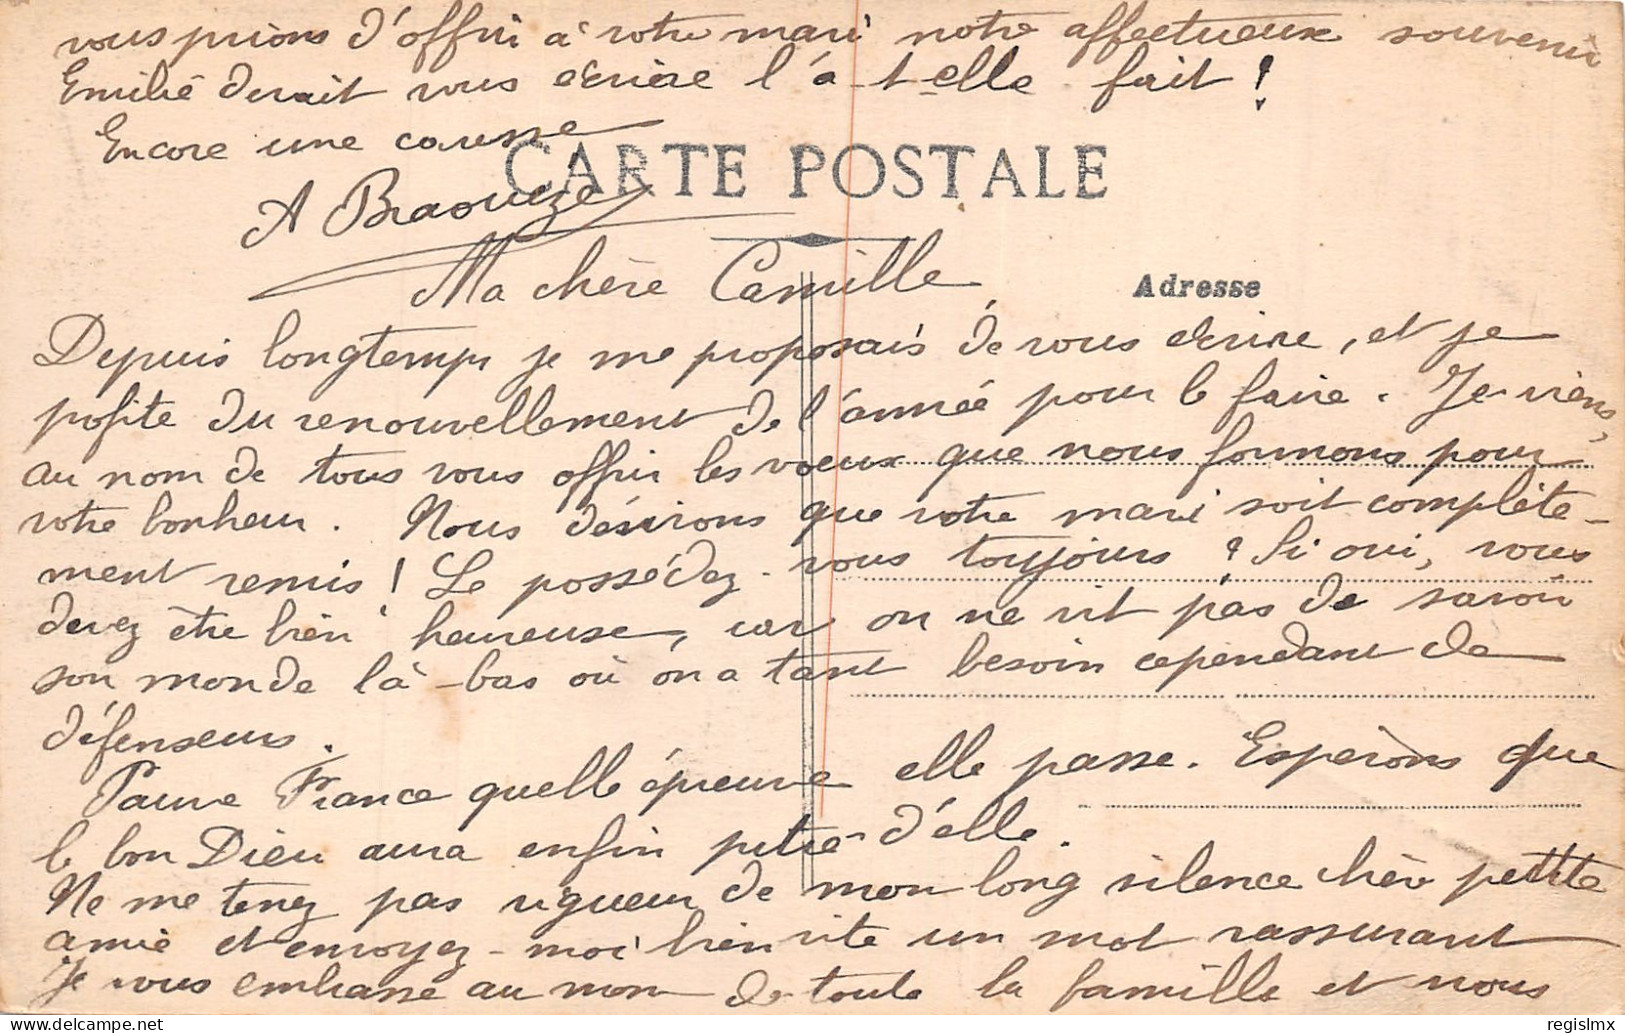 vous prions d'offrir à votre mari notre affectueux souvenir
Emilie devait vous écrire l'a-t-elle fait !
Encore une caresse
CARTE POSTALE
A Braouezec
Ma chère Camille
Adresse
Depuis longtemps je me proposais de vous écrire, et je
profite du renouvellement de l'année pour le faire. Je viens,
au nom de tous vous offrir les voeux que nous formons pour
votre bonheur. Nous désirons que votre mari soit complète-
ment remis ! Le possédez-vous toujours ? Si oui, vous
devez être bien heureuse, car on ne vit pas de savoir
son monde là-bas où on a tant besoin cependant de
défenseurs.
Pauvre France quelle épreuve elle passe. Espérons que
le bon Dieu aura enfin pitié d'elle.
Ne me tenez pas rigueur de mon long silence chère petite
amie et envoyez-moi bien vite un mot rassurant
Je vous embrasse au nom de toute la famille et nous
delcampe.net
regislmx